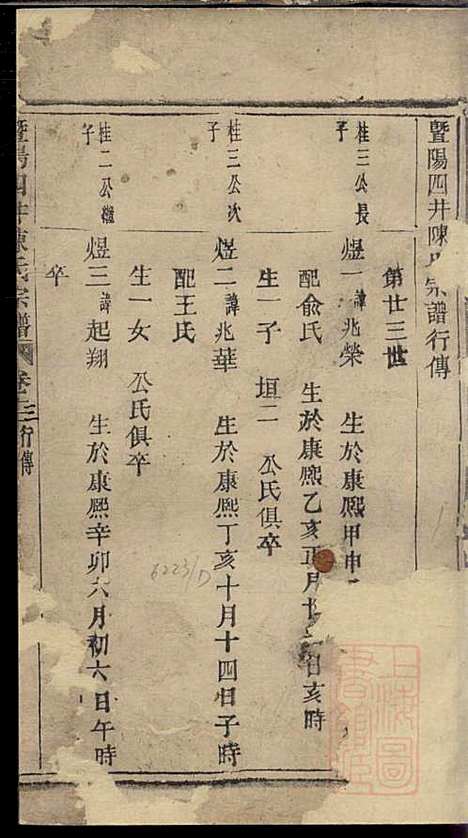 暨陽四井陳氏宗譜行傳
第廿三世
桂三公長子
煜一 諱兆榮 生於康熙甲申
配俞氏 生於康熙乙亥正月十日亥時
生一子 垣二 公氏俱卒
桂三公次子
煜二 諱兆華 生於康熙丁亥十月十四日子時
配王氏
生一女 公氏俱卒
桂二公繼子
煜三 諱起翔 生於康熙辛卯六月初六日午時
卒
暨陽四井陳氏宗譜 卷之三 行傳
6223/D
上海圖書館藏